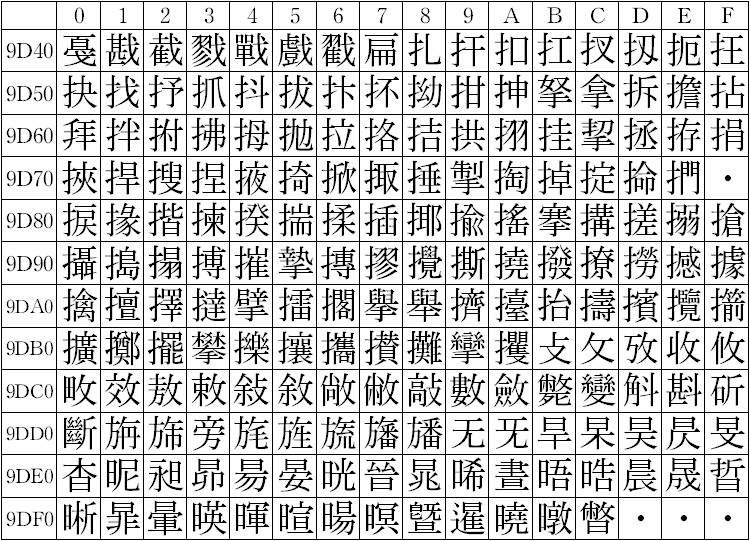 0 1 2 3 4 5 6 7 8 9 A B C D E F
9D40 戞 戡 截 戮 戰 戲 戳 扁 扎 扞 扣 扛 扠 扨 扼 抂
9D50 抉 找 抒 抓 抖 拔 抃 抔 拗 拑 抻 拏 拿 拆 擔 拈
9D60 拜 拌 拊 拂 拇 抛 拉 挌 拮 拱 挧 挂 挈 拯 拵 捐
9D70 挾 捍 搜 捏 掖 掎 掀 掫 捶 掣 掏 掉 掟 掵 捫 ・
9D80 捩 掾 揩 揀 揆 揣 揉 插 揶 揄 搖 搴 搆 搓 搦 搶
9D90 攝 搗 搨 搏 摧 摯 摶 摎 攪 撕 撓 撥 撩 撈 撼 據
9DA0 擒 擅 擇 撻 擘 擂 擱 擧 舉 擠 擡 抬 擣 擯 攬 擶
9DB0 擴 擲 擺 攀 擽 攘 攜 攅 攤 攣 攫 攴 攵 攷 收 攸
9DC0 畋 效 敖 敕 敍 敘 敞 敝 敲 數 斂 斃 變 斛 斟 斫
9DD0 斷 旃 旆 旁 旄 旌 旒 旛 旙 无 旡 旱 杲 昊 昃 旻
9DE0 杳 昵 昶 昴 昜 晏 晄 晉 晁 晞 晝 晤 晧 晨 晟 晢
9DF0 晰 暃 暈 暎 暉 暄 暘 暝 曁 暹 曉 暾 暼 ・ ・ ・